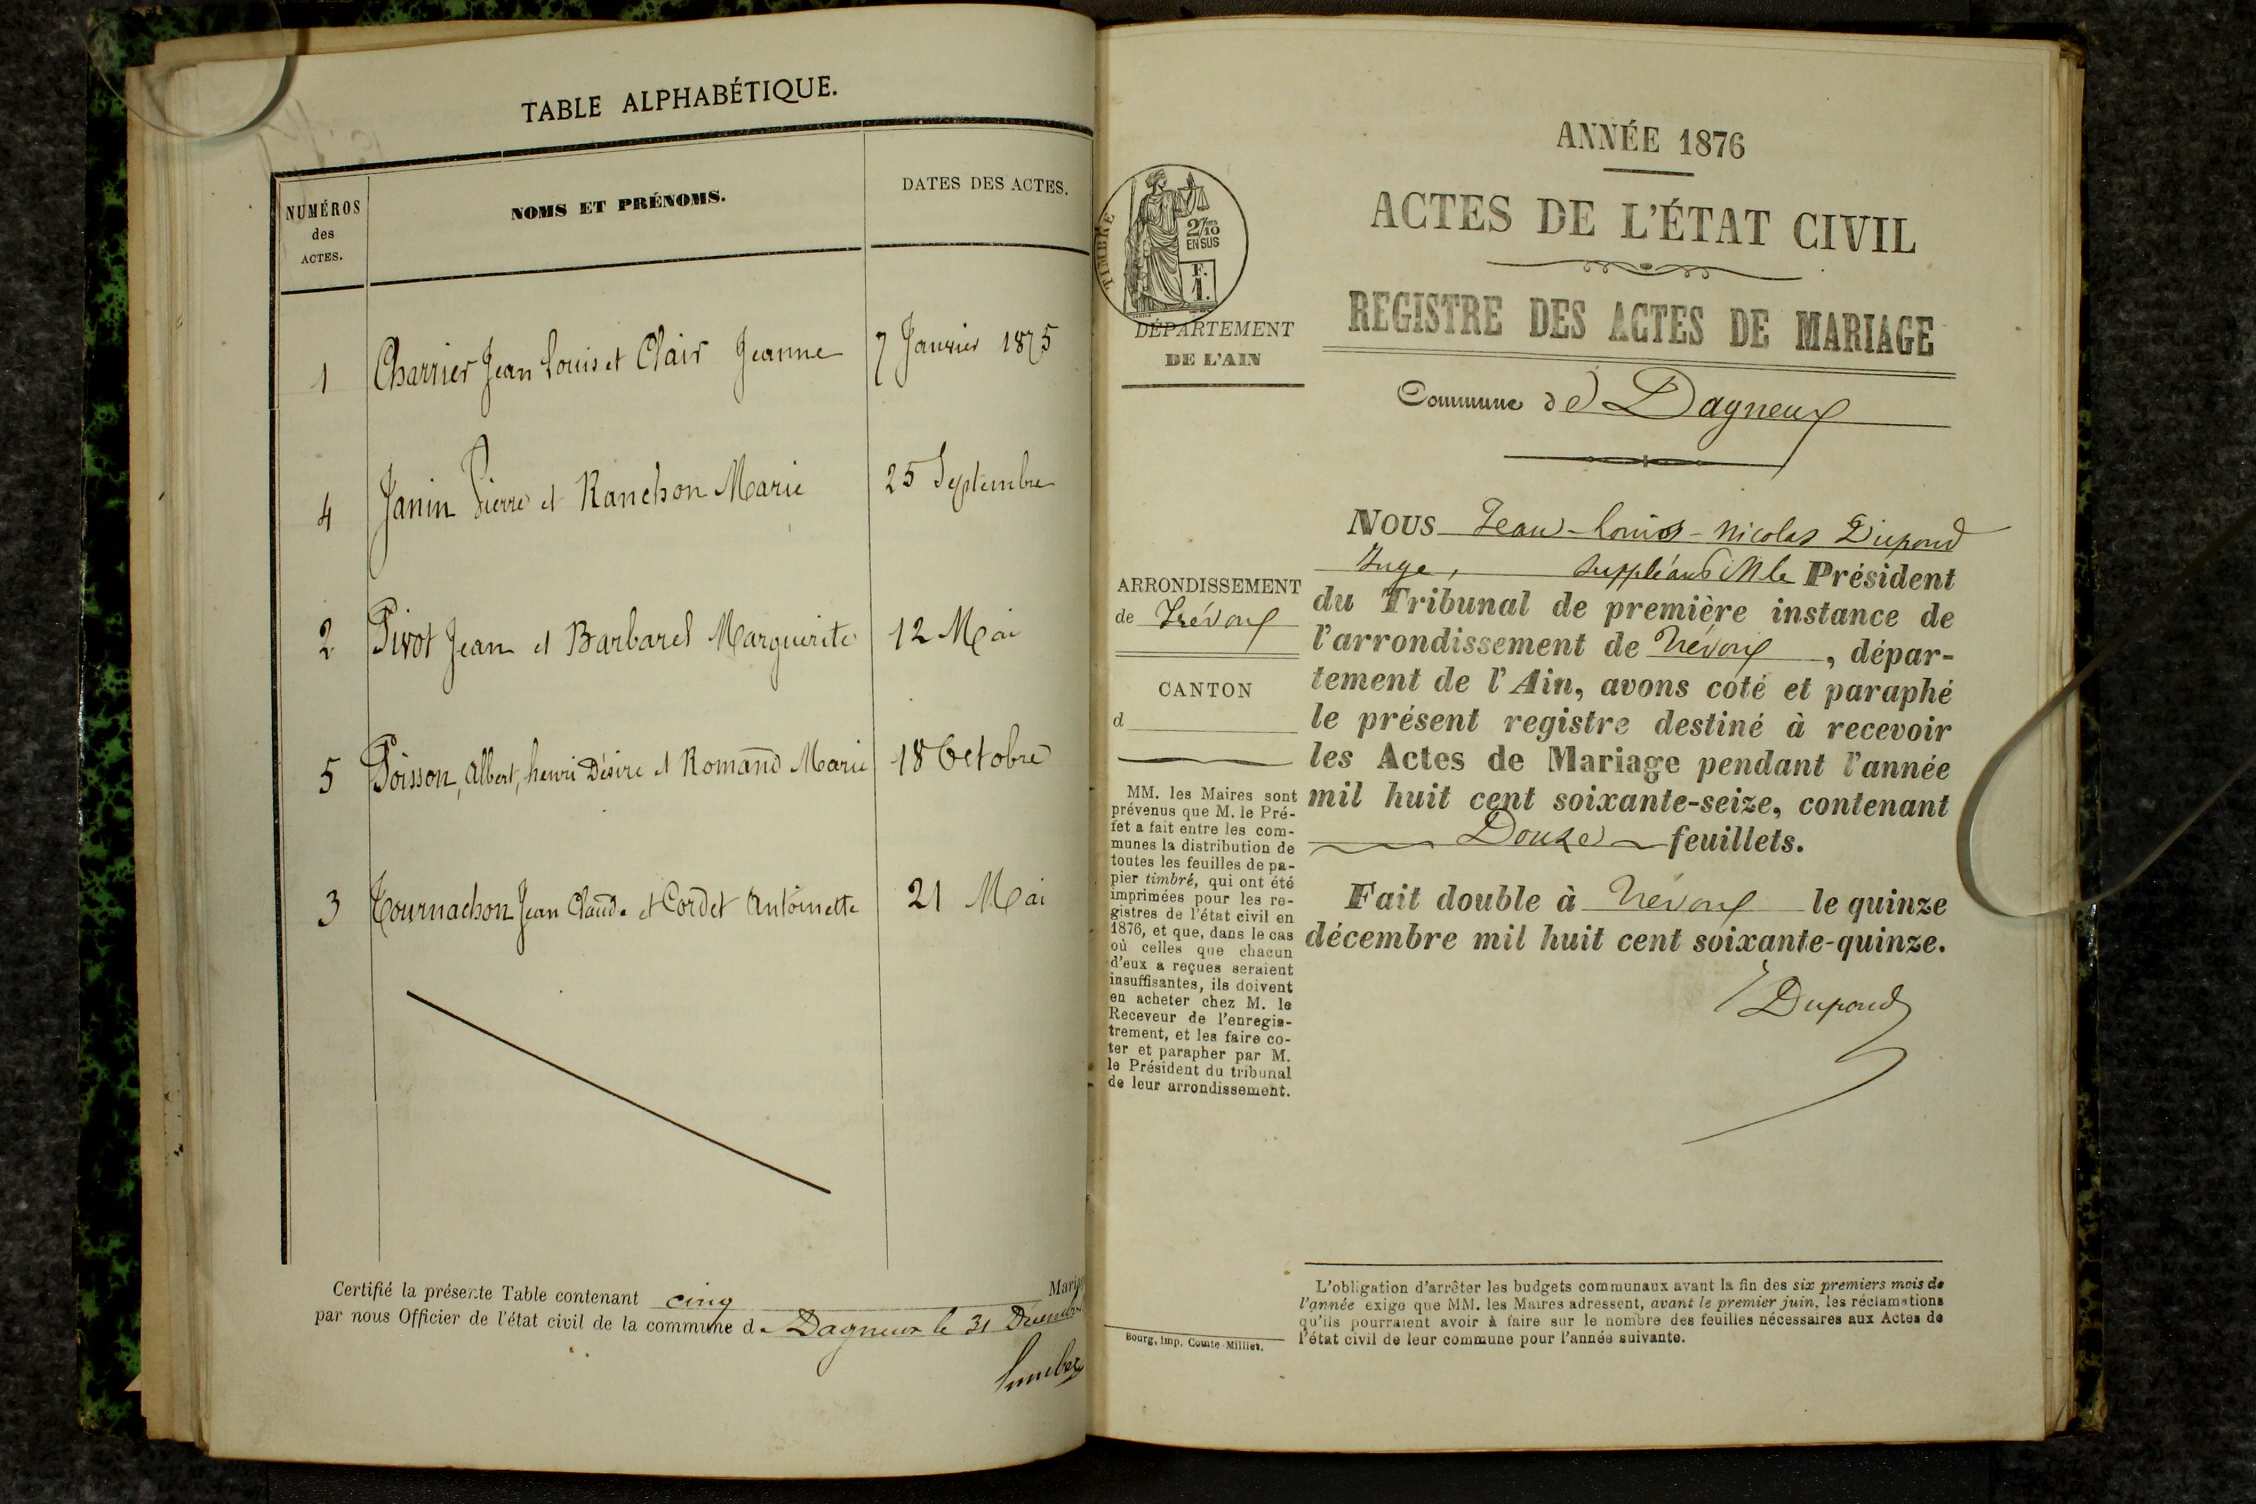 TABLE ALPHABÉTIQUE.
NUMÉROS
des
ACTES.
NOMS ET PRÉNOMS.
DATES DES ACTES.
1 Charrier Jean Louis et Clair Jeanne 7 Janvier 1875
4 Janin Pierre et Ranchon Marie 25 Septembre
2 Pivot Jean et Barbaret Marguerite 12 Mai
5 Poisson, Albert, henri Désire et Romand Marie 18 Octobre
3 Tournachon Jean Claude et Cordet Antoinette 21 Mai
Certifié la présente Table contenant cinq
par nous Officier de l'état civil de la commune d Dagneux le 31
TIMBRE
2/10
EN SUS
F.
1.
DÉPARTEMENT
DE L'AIN
ARRONDISSEMENT
de Trévoux
CANTON
d
MM. les Maires sont
prévenus que M. le Pré-
fet a fait entre les com-
munes la distribution de
toutes les feuilles de pa-
pier timbré, qui ont été
imprimées pour les re-
gistres de l'état civil en
1876, et que, dans le cas
où celles que chacun
d'eux a reçues seraient
insuffisantes, ils doivent
en acheter chez M. le
Receveur de l'enregis-
trement, et les faire co-
ter et parapher par M.
le Président du tribunal
de leur arrondissement.
Bourg, imp. Comte-Milliet.
ANNÉE 1876
ACTES DE L'ÉTAT CIVIL
REGISTRE DES ACTES DE MARIAGE
Commune de Dagneux
NOUS Jean-Louis-Nicolas Dupond
Juge, suppléant M le Président
du Tribunal de première instance de
l'arrondissement de Trévoux, dépar-
tement de l'Ain, avons coté et paraphé
le présent registre destiné à recevoir
les Actes de Mariage pendant l'année
mil huit cent soixante-seize, contenant
Douze feuillets.
Fait double à Trévoux le quinze
décembre mil huit cent soixante-quinze.
Dupond
L'obligation d'arrêter les budgets communaux avant la fin des six premiers mois de
l'année exige que MM. les Maires adressent, avant le premier juin, les réclamations
qu'ils pourraient avoir à faire sur le nombre des feuilles nécessaires aux Actes de
l'état civil de leur commune pour l'année suivante.